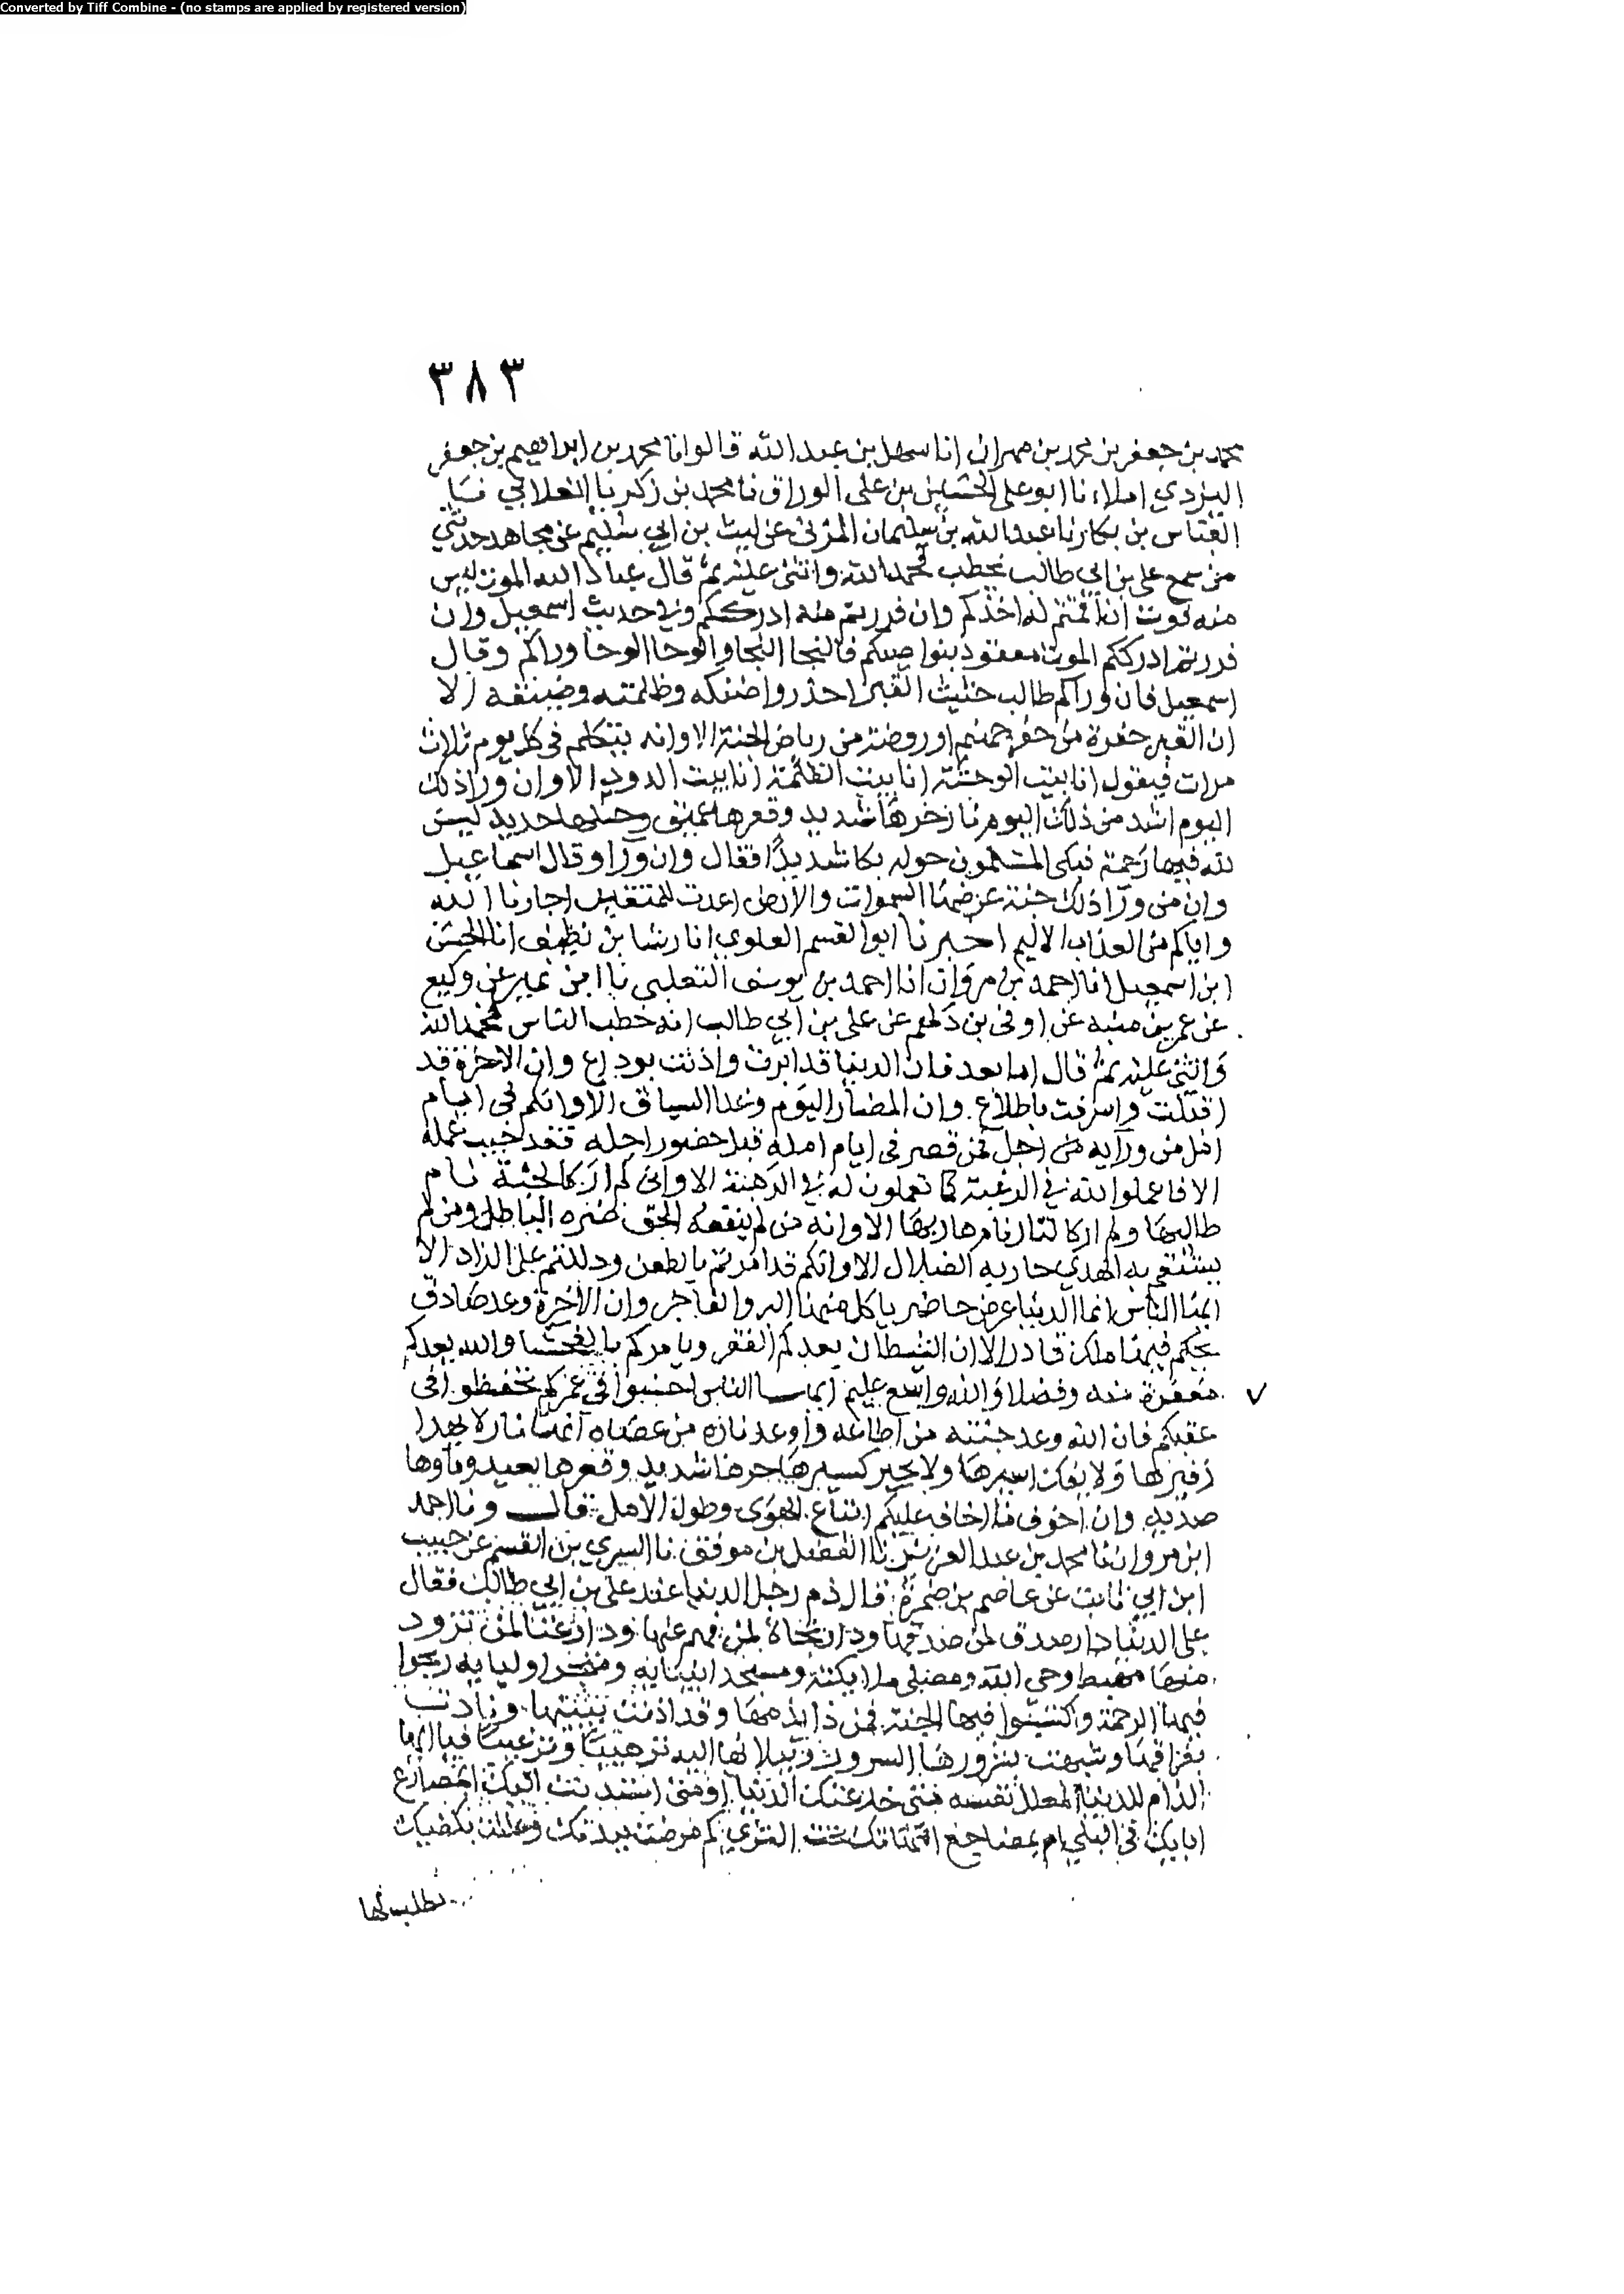 Converted by Tiff Combine - (no stamps are applied by registered version)
٣٨٣
محمد بن جعفر بن محمد بن مهران انا سهل بن عبد الله قالوا نا محمد بن ابراهيم بن جعفر
اليزدي املاء نا ابو علي الحسين بن علي الوراق نا محمد بن زكريا الغلابي نا
العباس بن بكار نا عبد الله بن سليمان المزني عن ليث بن ابي سليم عن مجاهد حدثني
من سمع علي بن ابي طالب يخطب فحمد الله واثنى عليه ثم قال عباد الله الموت ليس
منه فوت ان اقمتم له اخذكم وان فررتم منه ادرككم وفي حديث اسمعيل وان
فررتم ادرككم الموت معقود بنواصيكم فالنجا النجا والوحا الوحا وراكم وقال
اسمعيل فان وراكم طالب حثيث القبر احذروا ضنكه وظلمته وضيقه الا
ان القبر حفرة من حفر جهنم او روضة من رياض الجنة الا وانه يتكلم في كل يوم ثلاث
مرات فيقول انا بيت الوحشة انا بيت الظلمة انا بيت الدود الا وان ورا ذلك
اليوم اشد من ذلك اليوم نار حرها شديد وقعرها عميق وحليها حديد ليس
لله فيها رحمة فبكى المسلمون حوله بكا شديدا فقال وان ورا وقال اسماعيل
وان من ورا ذلك جنة عرضها السموات والارض اعدت للمتقين اجارنا الله
واياكم من العذاب الاليم اخبرنا ابو القسم العلوي انا رشا بن نظيف انا الحسن
ابن اسمعيل انا احمد بن مروان انا احمد بن يوسف التغلبي نا ابن نمير عن وكيع
عن عمر بن منبه عن اوفى بن دلهم عن علي بن ابي طالب انه خطب الناس فحمد الله
واثنى عليه ثم قال اما بعد فان الدنيا قد ادبرت واذنت بوداع وان الاخرة قد
اقبلت واشرفت باطلاع وان المضمار اليوم وغدا السباق الا وانكم في ايام
امل من ورايه اجل فمن قصر في ايام امله قبل حضور اجله فقد خيب عمله
الا فاعملوا لله في الرغبة كما تعملون له في الرهبة الا واني لم ار كالجنة نام
طالبها ولم ار كالنار نام هاربها الا وانه من لم ينفعه الحق ضره الباطل ومن لم
يستقم به الهدى حار به الضلال الا وانكم قد امرتم بالظعن ودللتم على الزاد الا
ايها الناس انما الدنيا عرض حاضر ياكل منها البر والفاجر وان الاخرة وعد صادق
يحكم فيها ملك قادر الا ان الشيطان يعدكم الفقر ويامركم بالفحشا والله يعدكم
مغفرة منه وفضلا والله واسع عليم ايها الناس احسنوا في عمركم تحفظوا في
عقبكم فان الله وعد جنته من اطاعه واوعد ناره من عصاه انها نار لا يهدا
زفيرها ولا يفك اسيرها ولا يجبر كسيرها حرها شديد وقعرها بعيد وماوها
صديد وان اخوف ما اخاف عليكم اتباع الهوى وطول الامل قال ونا احمد
ابن مروان نا محمد بن عبد العزيز نا الفضل بن موفق نا السري بن القسم عن حبيب
ابن ابي ثابت عن عاصم بن ضمرة قال ذم رجل الدنيا عند علي بن ابي طالب فقال
علي الدنيا دار صدق لمن صدقها ودار نجاة لمن فهم عنها ودار غنا لمن تزود
منها مهبط وحي الله ومصلى ملايكته ومسجد انبيايه ومتجر اوليايه ربحوا
فيها الرحمة واكتسبوا فيها الجنة فمن ذا يذمها وقد اذنت ببينها ونادت
بفراقها وشبهت بسرورها السرور وببلائها اليه ترهيبا وترغيبا فيا ايها
الذام للدنيا المعلل نفسه متى خدعتك الدنيا او متى استذمت اليك ابمصارع
ابايك في البلى ام بمضاجع امهاتك تحت الثرى كم مرضت بيديك وعللت بكفيك
تطلب لها